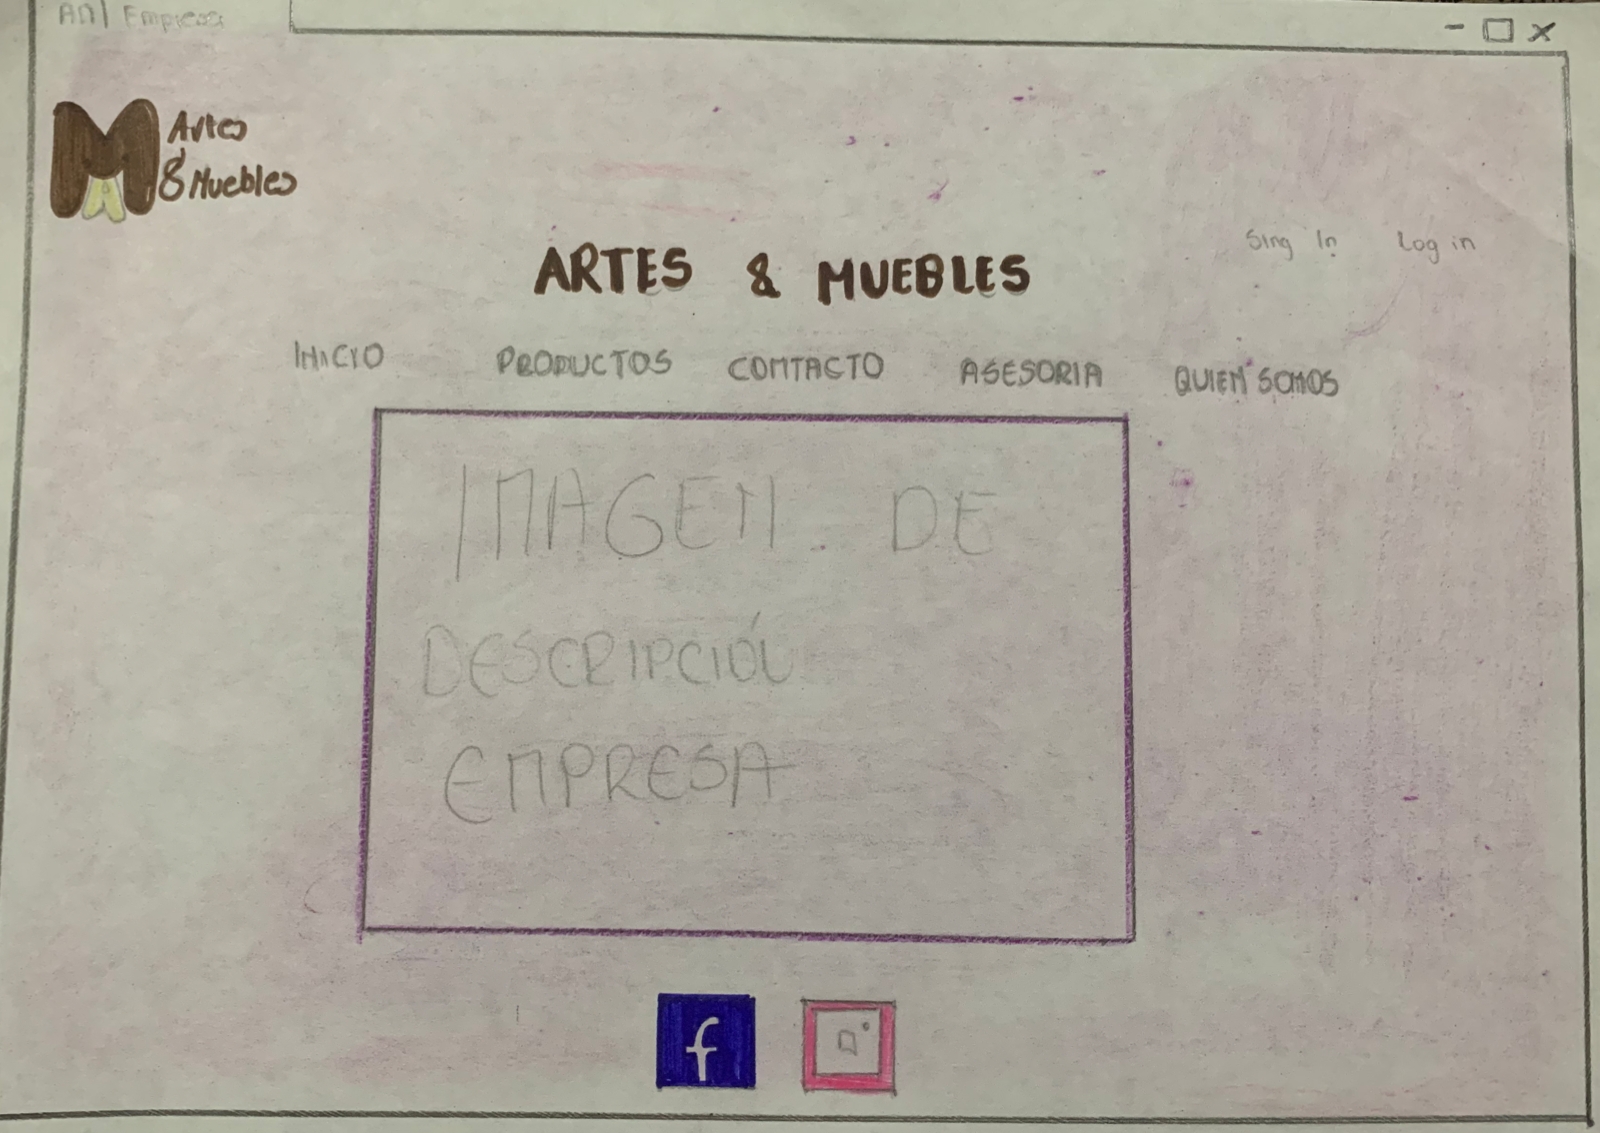 AM| Empresa
Artes
& Muebles
ARTES & MUEBLES
Sing In Log in
INICIO PRODUCTOS CONTACTO ASESORIA QUIEN SOMOS
IMAGEN DE
DESCRIPCIÓN
EMPRESA
f